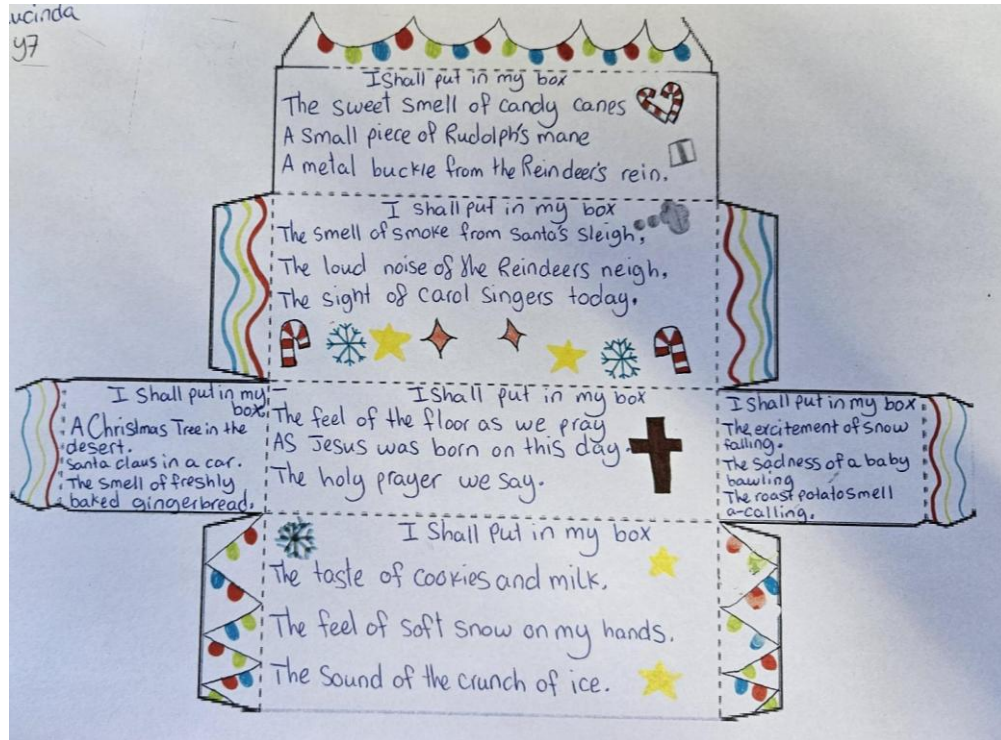 ucinda
y7
I Shall put in my box
The sweet smell of candy canes
A small piece of Rudolph's mane
A metal buckle from the Reindeer's rein.
I shall put in my box
The smell of smoke from Santa's sleigh,
The loud noise of the Reindeers neigh,
The sight of Carol Singers today.
I Shall put in my
box
A Christmas Tree in the
desert.
Santa claus in a car.
The smell of freshly
baked gingerbread.
I Shall put in my box
The feel of the floor as we pray
AS Jesus was born on this day
The holy prayer we say.
I Shall put in my box
The excitement of snow
falling.
The sadness of a baby
bawling
The roast potato smell
a-calling.
I Shall Put in my box
The taste of cookies and milk.
The feel of soft snow on my hands.
The Sound of the crunch of ice.